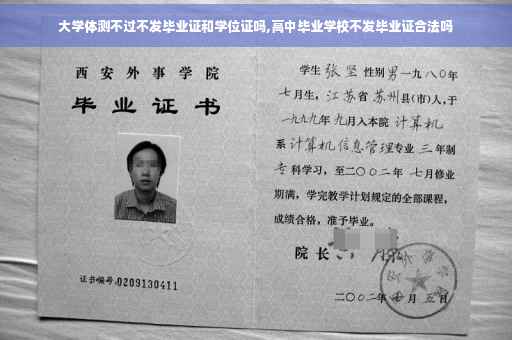 大学体测不过不发毕业证和学位证吗,高中毕业学校不发毕业证合法吗
西安外事学院
毕业证书
证书编号:0209130411
学生 张坚 性别 男 一九八〇年
七月生, 江苏省 苏州县(市)人,于
一九九九年 九月入本院 计算机
系 计算机信息管理专业 三 年制
专 科学习, 至二〇〇二年 七月修业
期满, 学完教学计划规定的全部课程,
成绩合格, 准予毕业。
院长
二〇〇二年 七月 五日